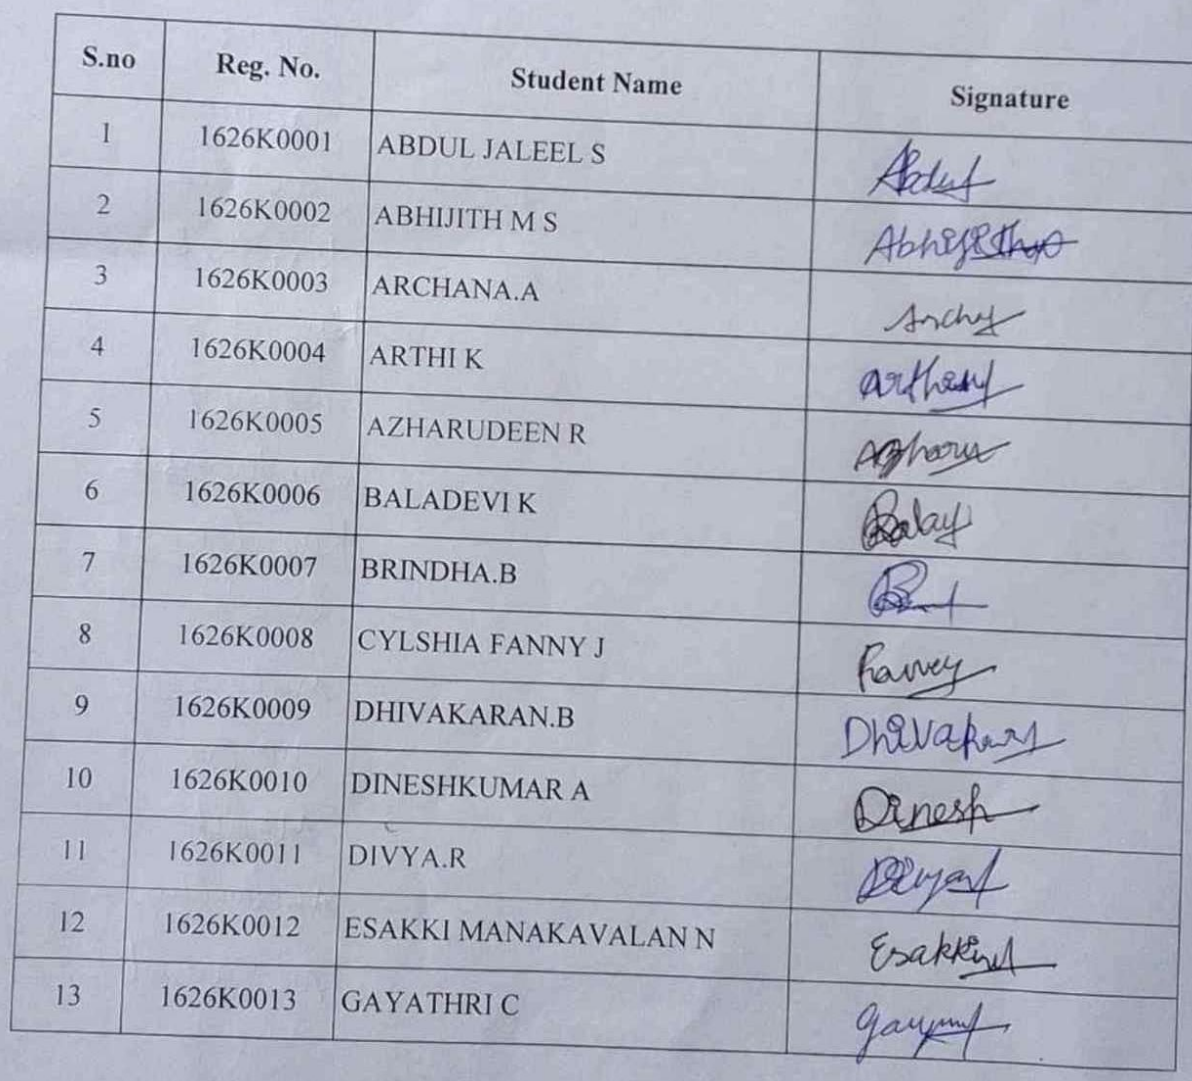 S.no Reg. No. Student Name Signature
1 1626K0001 ABDUL JALEEL S Abdul
2 1626K0002 ABHIJITH M S
3 1626K0003 ARCHANA.A
4 1626K0004 ARTHI K
5 1626K0005 AZHARUDEEN R
6 1626K0006 BALADEVI K
7 1626K0007 BRINDHA.B
8 1626K0008 CYLSHIA FANNY J
9 1626K0009 DHIVAKARAN.B
10 1626K0010 DINESHKUMAR A Dinesh
11 1626K0011 DIVYA.R
12 1626K0012 ESAKKI MANAKAVALAN N
13 1626K0013 GAYATHRI C